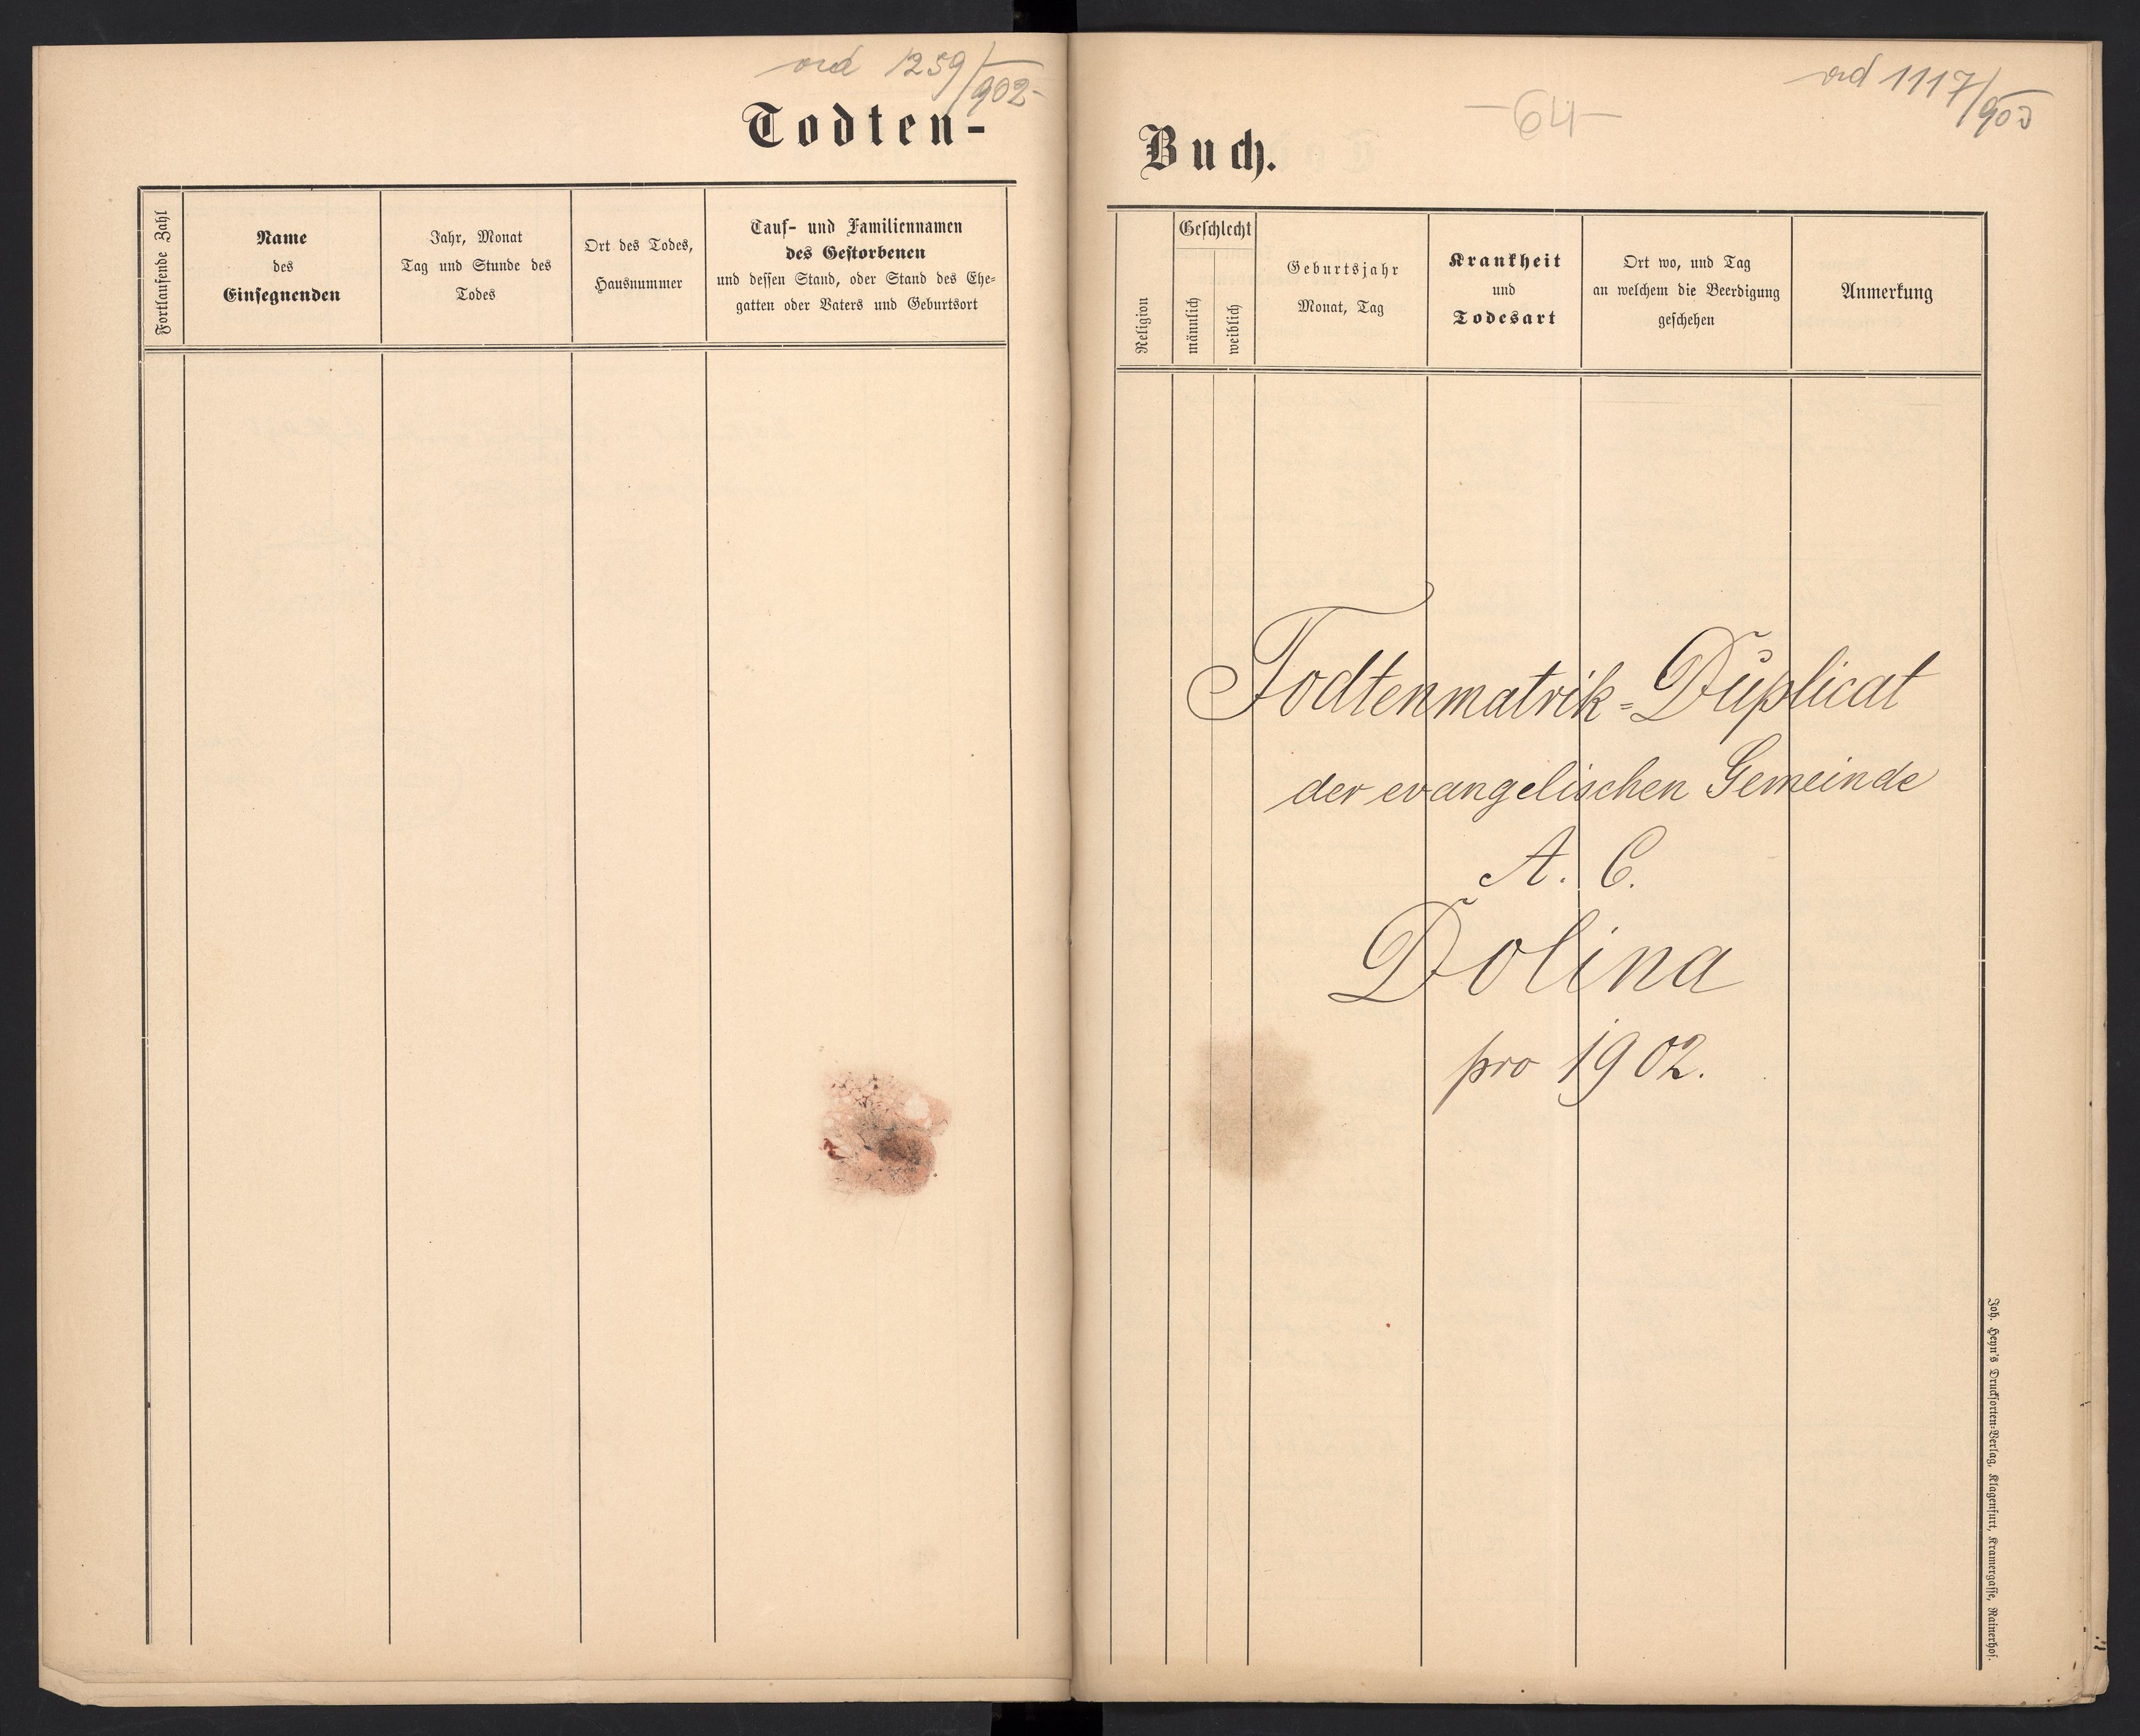 ad 1259/902
Todten-
Fortlaufende Zahl
Name
des
Einsegnenden
Jahr, Monat
Tag und Stunde des
Todes
Ort des Todes,
Hausnummer
Tauf- und Familiennamen
des Gestorbenen
und dessen Stand, oder Stand des Ehe-
gatten oder Vaters und Geburtsort
-64-
ad 1117/903
Buch.
Religion
Geschlecht
männlich
weiblich
Geburtsjahr
Monat, Tag
Krankheit
und
Todesart
Ort wo, und Tag
an welchem die Beerdigung
geschehen
Anmerkung
Todtenmatrik=Duplicat
der evangelischen Gemeinde
A. C.
Dolina
pro 1902.
Joh. Heyn's Drucksorten-Verlag, Klagenfurt, Kramergasse, Rainerhof.